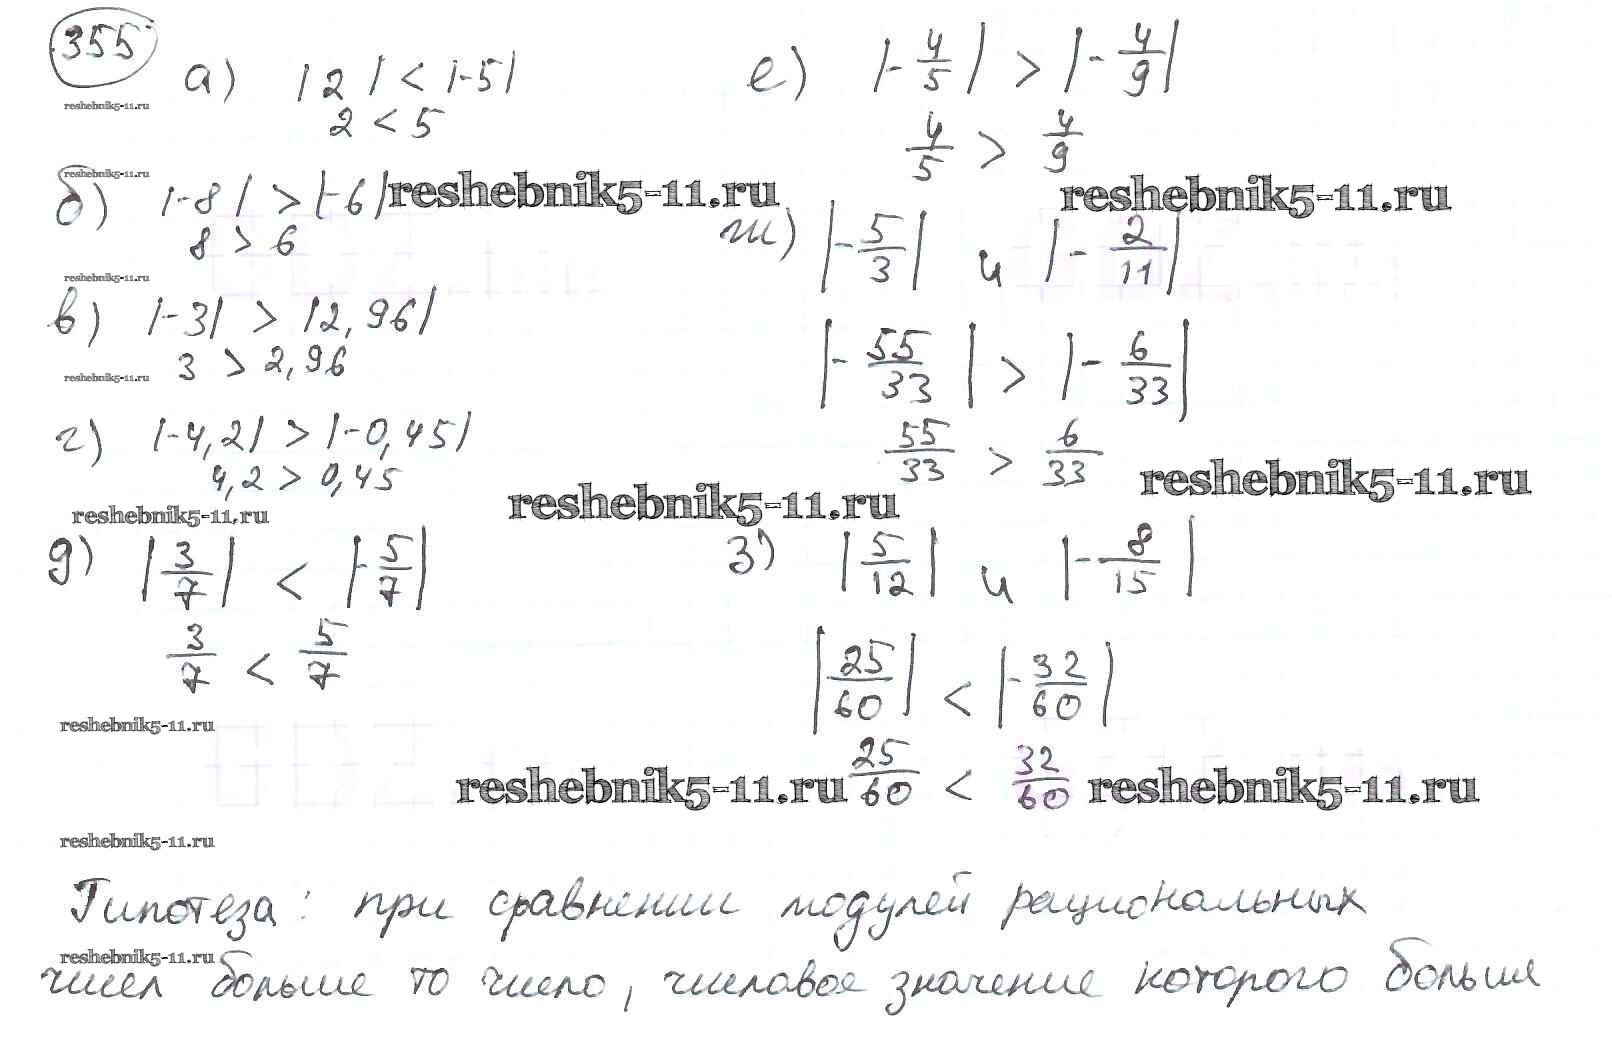 355
reshebnik5-11.ru
а) |2| < |-5|
2 < 5
reshebnik5-11.ru
б) |-8| > |-6| reshebnik5-11.ru
8 > 6
reshebnik5-11.ru
в) |-3| > |2,96|
3 > 2,96
reshebnik5-11.ru
г) |-4,2| > |-0,45|
4,2 > 0,45
reshebnik5-11.ru
reshebnik5-11.ru
д) |3/7| < |-5/7|
3/7 < 5/7
reshebnik5-11.ru
reshebnik5-11.ru
reshebnik5-11.ru
е) |-4/5| > |-4/9|
4/5 > 4/9
reshebnik5-11.ru
ж) |-5/3| и |-2/11|
|-55/33| > |-6/33|
55/33 > 6/33
reshebnik5-11.ru
з) |5/12| и |-8/15|
|25/60| < |-32/60|
25/60 < 32/60 reshebnik5-11.ru
Гипотеза: при сравнении модулей рациональных
reshebnik5-11.ru
чисел больше то число, числовое значение которого больше